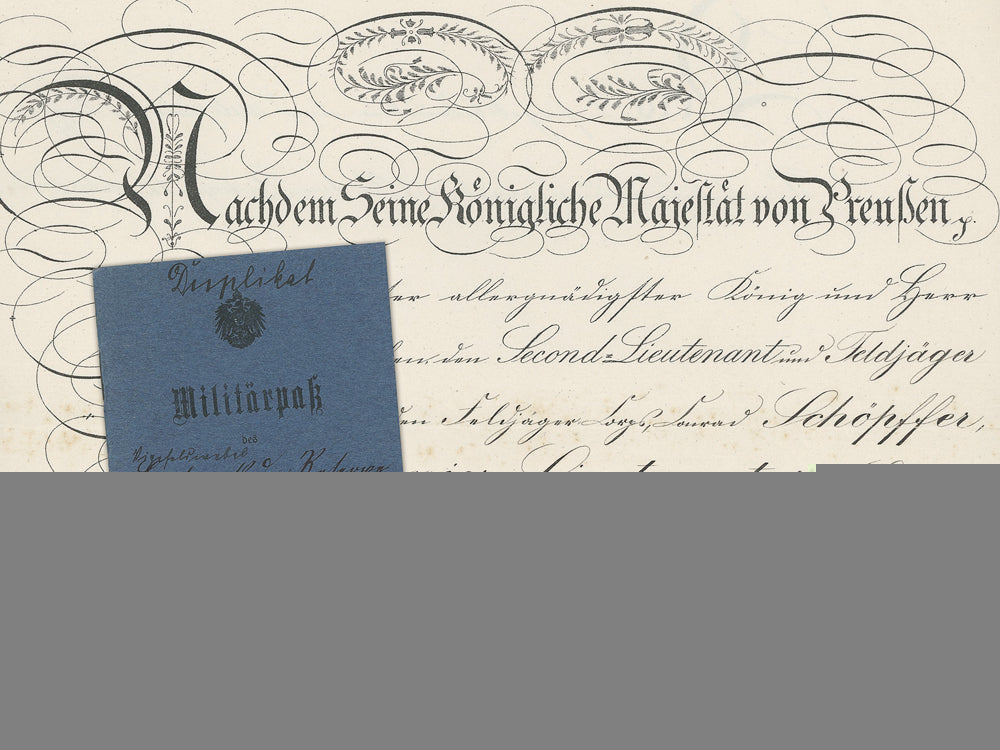 Nachdem Seine Königliche Majestät von Preußen,
allergnädigster König und Herr
den Second-Lieutenant und Feldjäger
Feldjäger Corps, Conrad Schöpffer,
Duplikat
Militärpaß
des
Vizefeldwebel
der Reserve